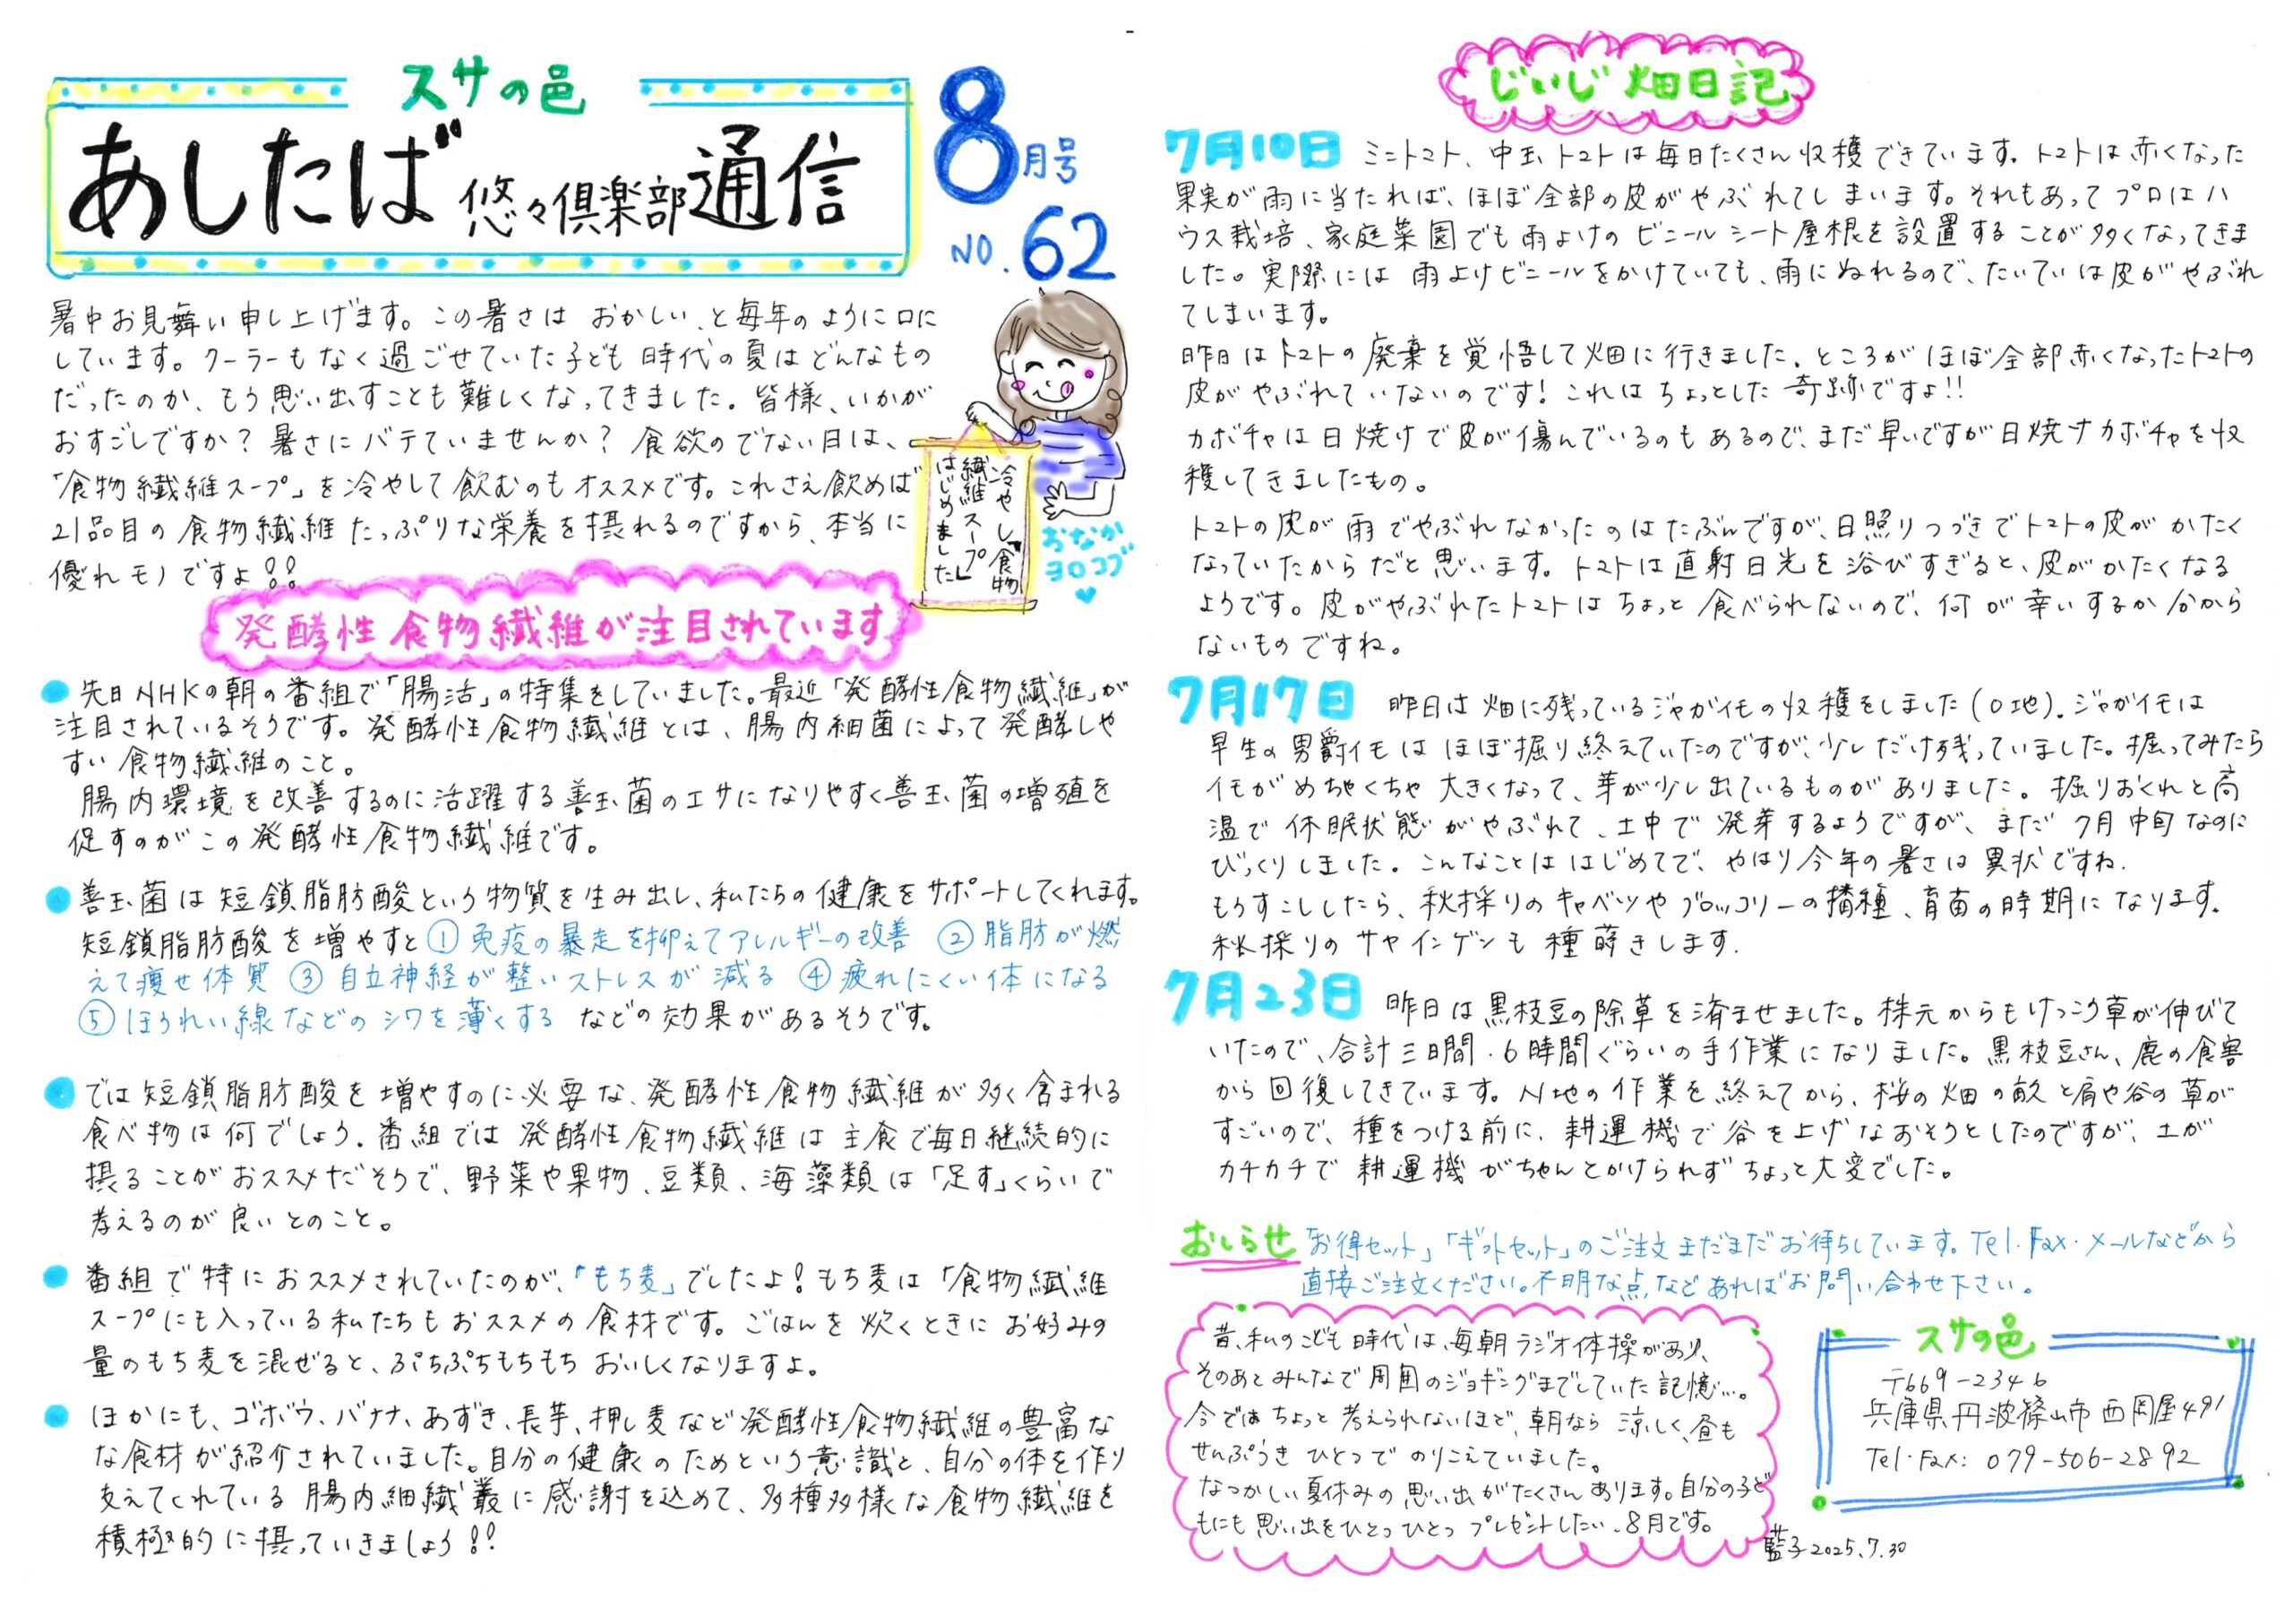 スサの邑
あしたば 悠々倶楽部 通信
8月号
NO.62
暑中お見舞い申し上げます。この暑さは おかしい、と毎年のように口に
しています。クーラーもなく過ごせていた子ども時代の夏はどんなもの
だったのか、もう思い出すことも難しくなってきました。皆様、いかが
おすごしですか？暑さにバテていませんか？食欲のでない日は、
「食物繊維スープ」を冷やして飲むのもオススメです。これさえ飲めば
21品目の食物繊維たっぷりな栄養を摂れるのですから、本当に
優れモノですよ!!
冷やし「食物
繊維スープ」
はじめました
おなか
ヨロコブ
発酵性食物繊維が注目されています
●先日NHKの朝の番組で「腸活」の特集をしていました。最近「発酵性食物繊維」が
注目されているそうです。発酵性食物繊維とは、腸内細菌によって発酵しや
すい食物繊維のこと。
腸内環境を改善するのに活躍する善玉菌のエサになりやすく善玉菌の増殖を
促すのがこの発酵性食物繊維です。
●善玉菌は短鎖脂肪酸という物質を生み出し、私たちの健康をサポートしてくれます。
短鎖脂肪酸を増やすと①免疫の暴走を抑えてアレルギーの改善 ②脂肪が燃
えて痩せ体質 ③自立神経が整いストレスが減る ④疲れにくい体になる
⑤ほうれい線などのシワを薄くする などの効果があるそうです。
●では短鎖脂肪酸を増やすのに必要な、発酵性食物繊維が多く含まれる
食べ物は何でしょう。番組では発酵性食物繊維は主食で毎日継続的に
摂ることがおススメだそうで、野菜や果物、豆類、海藻類は「足す」くらいで
考えるのが良いとのこと。
●番組で特におススメされていたのが、「もち麦」でしたよ！もち麦は「食物繊維
スープにも入っている私たちもおススメの食材です。ごはんを炊くときにお好みの
量のもち麦を混ぜると、ぷちぷちもちもちおいしくなりますよ。
●ほかにも、ゴボウ、バナナ、あずき、長芋、押し麦など発酵性食物繊維の豊富な
な食材が紹介されていました。自分の健康のためという意識と、自分の体を作り
支えてくれている腸内細繊叢に感謝を込めて、多種多様な食物繊維を
積極的に摂っていきましょう!!
じいじ畑日記
7月10日 ミニトマト、中玉トマトは毎日たくさん収穫できています。トマトは赤くなった
果実が雨に当たれば、ほぼ全部の皮がやぶれてしまいます。それもあってプロはハ
ウス栽培、家庭菜園でも雨よけのビニールシート屋根を設置することが多くなってきま
した。実際には雨よけビニールをかけていても、雨にぬれるので、たいていは皮がやぶれ
てしまいます。
昨日はトマトの廃棄を覚悟して畑に行きました。ところがほぼ全部赤くなったトマトの
皮がやぶれていないのです！これはちょっとした奇跡ですよ!!
カボチャは日焼けで皮が傷んでいるのもあるので、まだ早いですが日焼けカボチャを収
穫してきましたもの。
トマトの皮が雨でやぶれなかったのはたぶんですが、日照りつづきでトマトの皮がかたく
なっていたからだと思います。トマトは直射日光を浴びすぎると、皮がかたくなる
ようです。皮がやぶれたトマトはちょっと食べられないので、何が幸いするか分から
ないものですね。
7月17日 昨日は畑に残っているジャガイモの収穫をしました(O地)。ジャガイモは
早生の男爵イモはほぼ掘り終えていたのですが、少しだけ残っていました。掘ってみたら
イモがめちゃくちゃ大きくなって、芽が少し出ているものがありました。掘りおくれと高
温で休眠状態がやぶれて、土中で発芽するようですが、まだ7月中旬なのに
びっくりしました。こんなことははじめてで、やはり今年の暑さは異状ですね。
もうすこししたら、秋採りのキャベツやブロッコリーの播種、育苗の時期になります。
秋採りのサヤインゲンも種蒔きします。
7月23日 昨日は黒枝豆の除草を済ませました。株元からもけっこう草が伸びて
いたので、合計三日間・6時間ぐらいの手作業になりました。黒枝豆さん、鹿の食害
から回復してきています。N地の作業を終えてから、桜の畑の畝と肩や谷の草が
すごいので、種をつける前に、耕運機で谷を上げなおそうとしたのですが、土が
カチカチで耕運機がちゃんとかけられずちょっと大変でした。
おしらせ 「お得セット」「ギフトセット」のご注文まだまだお待ちしています。Tel・Fax・メールなどから
直接ご注文ください。不明な点などあればお問い合わせ下さい。
昔、私のこども時代は、毎朝ラジオ体操があり、
そのあとみんなで周囲のジョギングまでしていた記憶…。
今ではちょっと考えられないほど、朝なら涼しく、昼も
せんぷうきひとつでのりこえていました。
なつかしい夏休みの思い出がたくさんあります。自分の子ど
もにも思い出をひとつひとつプレゼントしたい、8月です。
藍子2025.7.30
スサの邑
〒669-2346
兵庫県丹波篠山市西岡屋491
Tel・Fax: 079-506-2892